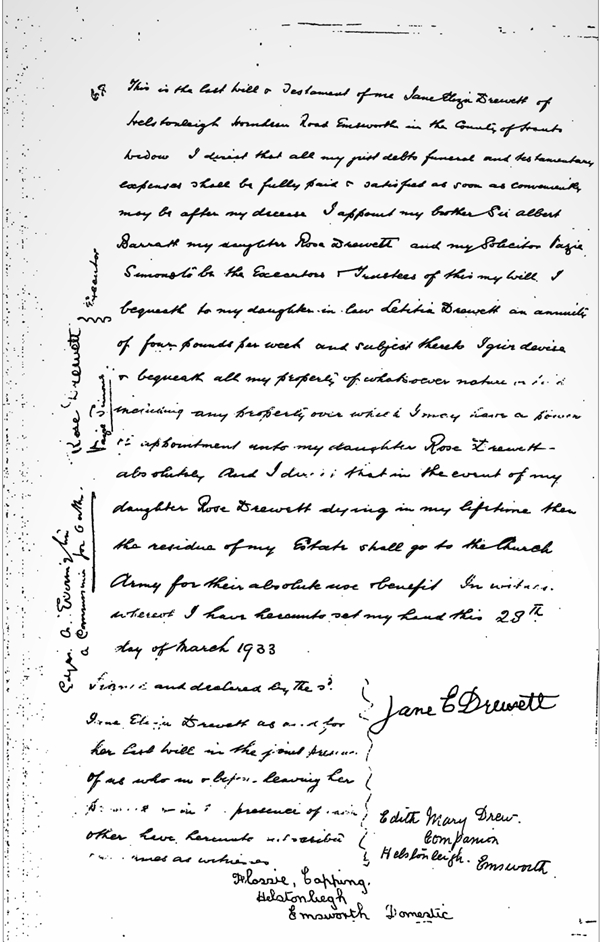 This is the last Will & Testament of me Jane Eliza Drewett of
Helstonleigh Horndean Road Emsworth in the County of Hants
Widow I direct that all my just debts funeral and testamentary
expenses shall be fully paid & satisfied as soon as conveniently
may be after my decease I appoint my brother Sir Albert
Barratt my daughter Rose Drewett and my Solicitor
Simons to be the Executors & Trustees of this my Will I
bequeath to my daughter-in-law Letitia Drewett an annuity
of four pounds per week and subject thereto I give devise
& bequeath all my property of whatsoever nature
including any property over which I may have a power
of appointment unto my daughter Rose Drewett
absolutely And I direct that in the event of my
daughter Rose Drewett dying in my lifetime then
the residue of my Estate shall go to the Church
Army for their absolute use & benefit In witness
whereof I have hereunto set my hand this 28th
day of March 1933
Signed and declared by the sd
Jane Eliza Drewett as and for
her last Will in the joint presence
of us who in & before leaving her
presence presence of each
other have hereunto subscribed
names as witnesses
Jane E Drewett
Edith Mary Drew.
Companion
Helstonleigh. Emsworth.
Flossie, Capping.
Helstonliegh
Emsworth Domestic
Rose Drewett
Simons
Exs
Executor
a Commissioner for Oaths.